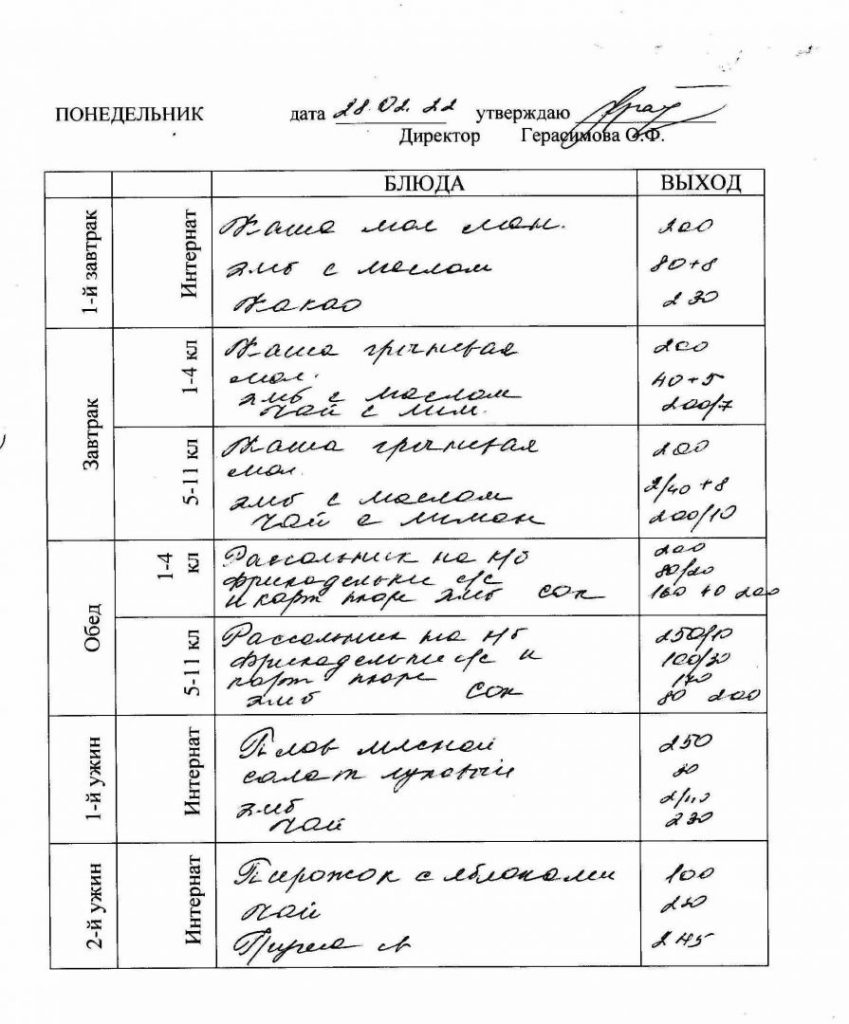 ПОНЕДЕЛЬНИК дата 28.02.22 утверждаю
Директор Герасимова О.Ф.
БЛЮДА ВЫХОД
1-й завтрак Интернат
Каша мол ман. 200
хлб с маслом 80+8
Какао 230
Завтрак 1-4 кл
Каша гречневая 200
мол.
хлб с маслом 40+5
чай с лим. 200/7
5-11 кл
Каша гречневая 200
мол.
хлб с маслом 2/40+8
Чай с лимон 200/10
Обед 1-4 кл
Рассольник на к/б 200
фрикадельки с/с 80/20
и карт пюре хлб сок 160 40 200
5-11 кл
Рассольник на к/б 250/10
фрикадельки с/с и 100/30
карт пюре 170
хлб сок 80 200
1-й ужин Интернат
Плов мясной 250
салат луковый 80
хлб
чай 230
2-й ужин Интернат
Пирожок с яблоками 100
чай
245